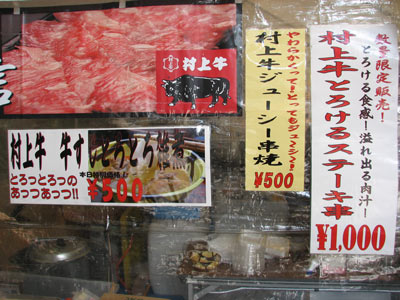 村上牛
村上牛 牛すじとろとろ煮
とろっとろっの
あっつあっつ!!
¥500
やわらか〜って!とってもジュ〜シ〜!
村上牛ジューシー串焼
¥500
数量限定販売!
とろける食感ー溢れ出る肉汁ー
村上牛とろけるステーキ串
¥1,000